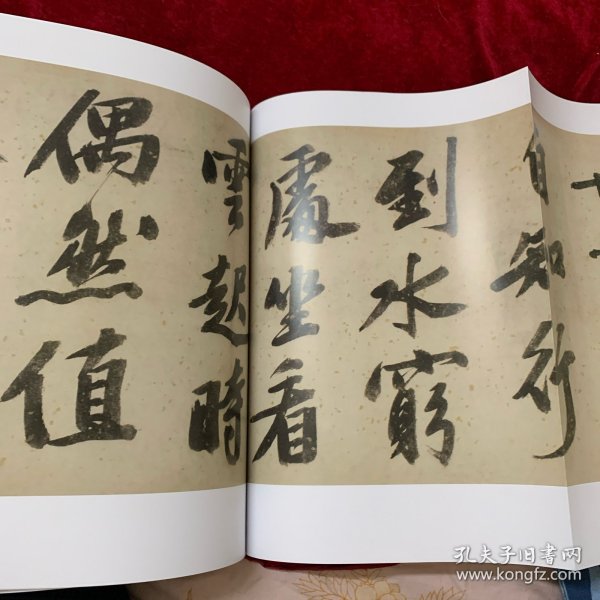 自知行
到水窮
處坐看
雲起時
偶然值
孔夫子旧书网
www.kongfz.com